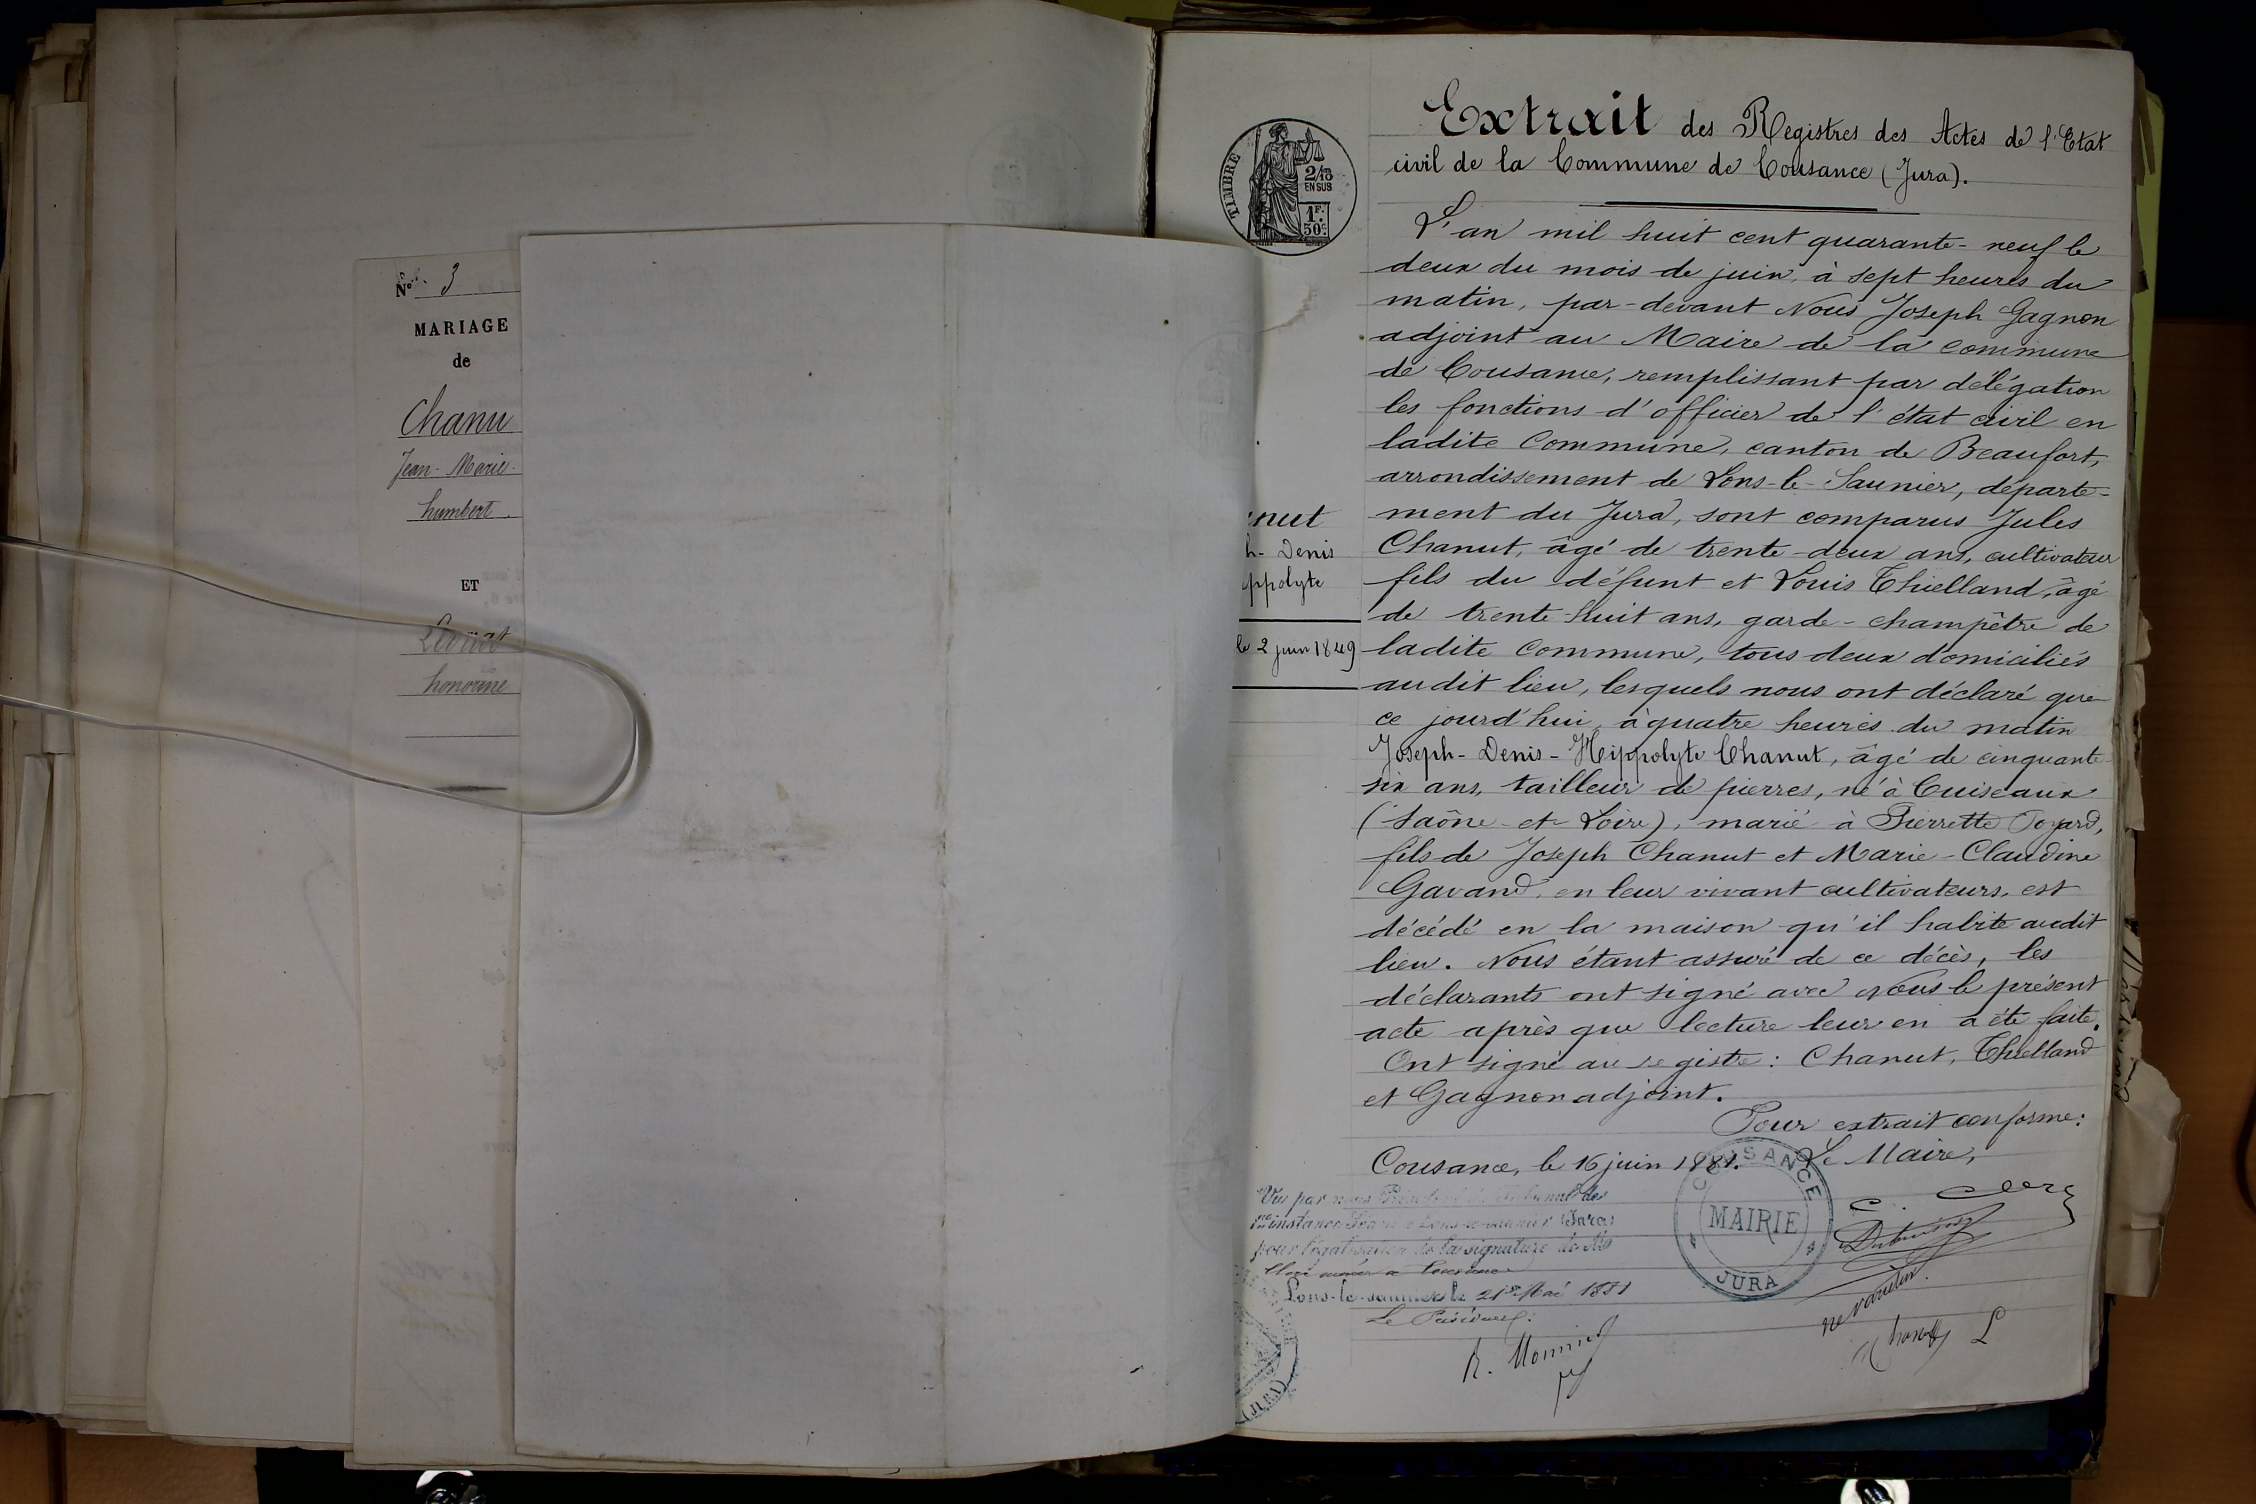 Nº 3
MARIAGE
de
Chanu
Jean-Marie-
humbert
ET
honorine
TIMBRE
2/10
EN SUS
1F.
50c.
nut
h-Denis
ppolyte
le 2 juin 1849
Extrait des Registres des Actes de l'Etat
civil de la Commune de Cousance (Jura).
L'an mil huit cent quarante-neuf le
deux du mois de juin, à sept heures du
matin, par-devant Nous Joseph Gagnon
adjoint au Maire de la commune
de Cousance, remplissant par délégation
les fonctions d'officier de l'état civil en
ladite Commune, canton de Beaufort,
arrondissement de Lons-le-Saunier, départe-
ment du Jura, sont comparus Jules
Chanut, âgé de trente-deux ans, cultivateur
fils du défunt et Louis Thielland, âgé
de trente-huit ans, garde-champêtre de
ladite Commune, tous deux domiciliés
audit lieu, lesquels nous ont déclaré que
ce jourd'hui, à quatre heures du matin
Joseph-Denis-Hippolyte Chanut, âgé de cinquante-
six ans, tailleur de pierres, né à Cuiseaux
(Saône-et-Loire), marié à Pierrette Joyard,
fils de Joseph Chanut et Marie-Claudine
Gavand, en leur vivant cultivateurs, est
décédé en la maison qu'il habite audit
lieu. Nous étant assuré de ce décès, les
déclarants ont signé avec Nous le présent
acte après que lecture leur en a été faite.
Ont signé au registre: Chanut, Thielland
et Gagnon adjoint.
Pour extrait conforme:
Cousance, le 16 juin 1881. Le Maire,
COUSANCE
MAIRIE
JURA
Vu par nous Président du Tribunal de
1re instance Lons-le-Saunier (Jura)
pour légalisation de la signature de M.
maire à Cousance
Lons-le-Saunier le 21 1881
Le Président:
ne varietur
(JURA)